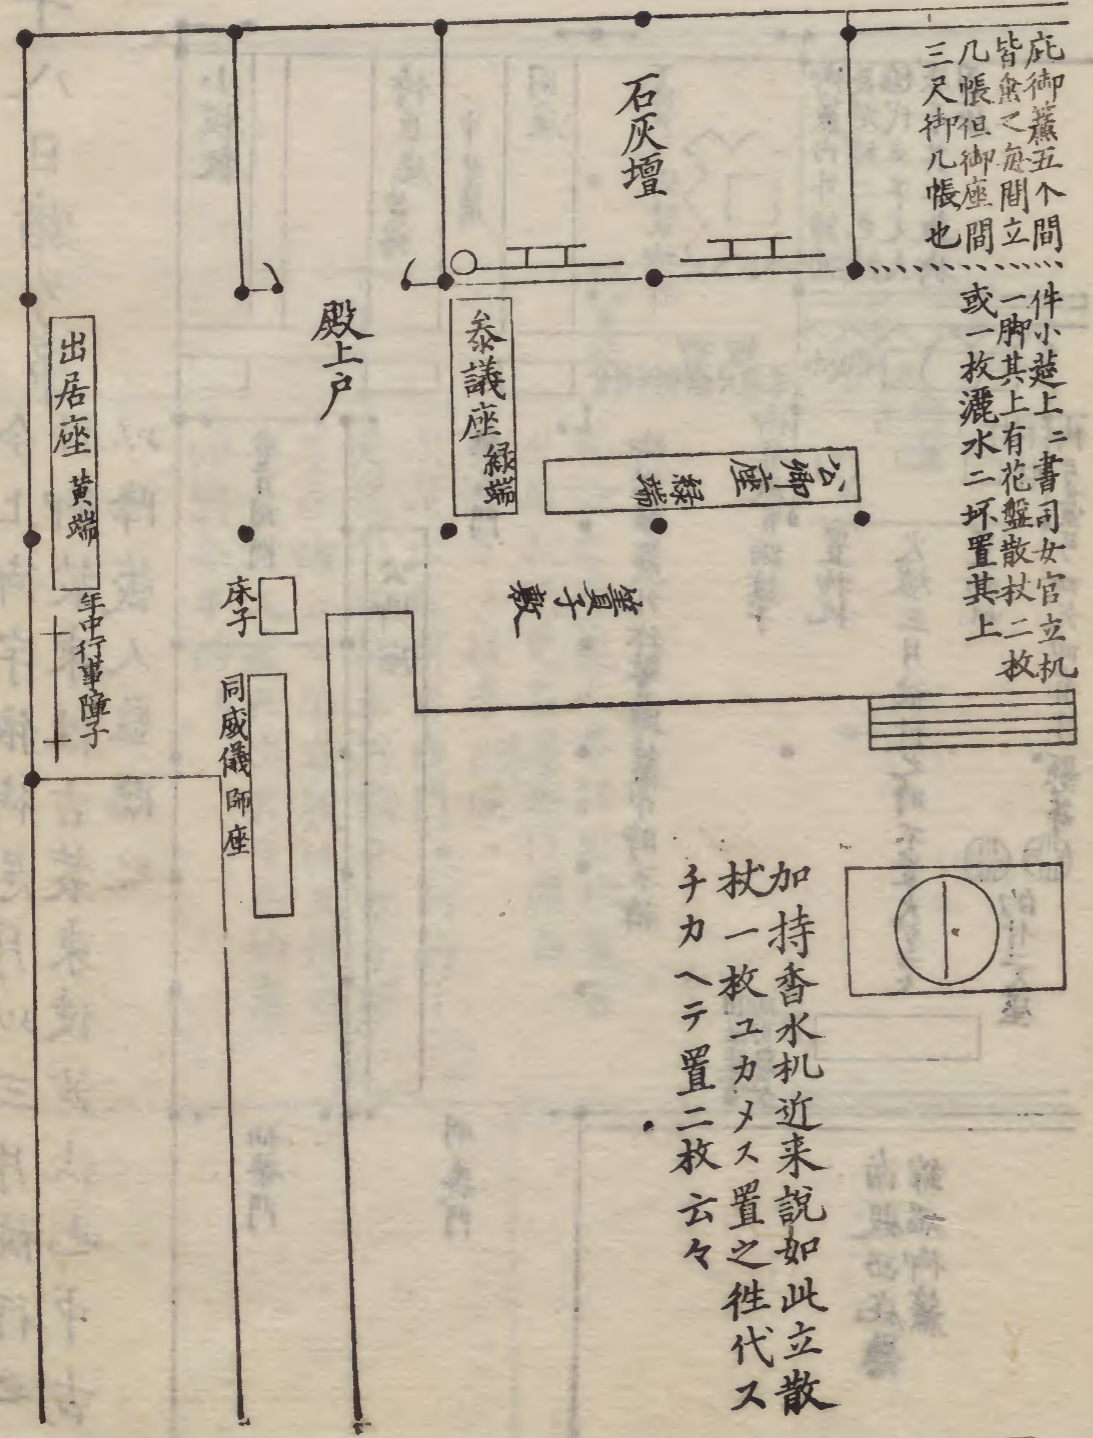 庇御簾五个間
皆垂之每間立
几帳但御座間
三尺御几帳也
件小莚上ニ書司女官立机
一脚其上有花盤散杖二枚
或一枚灑水二坏置其上
石灰壇
殿上戸
叅議座 緑端
公卿座 緑端
簀子敷
出居座 黄端
年中行事障子
床子
同威儀師座
加持香水机近来説如此立散
杖一枚ユカメス置之徃代ス
チカヘテ置二枚云々